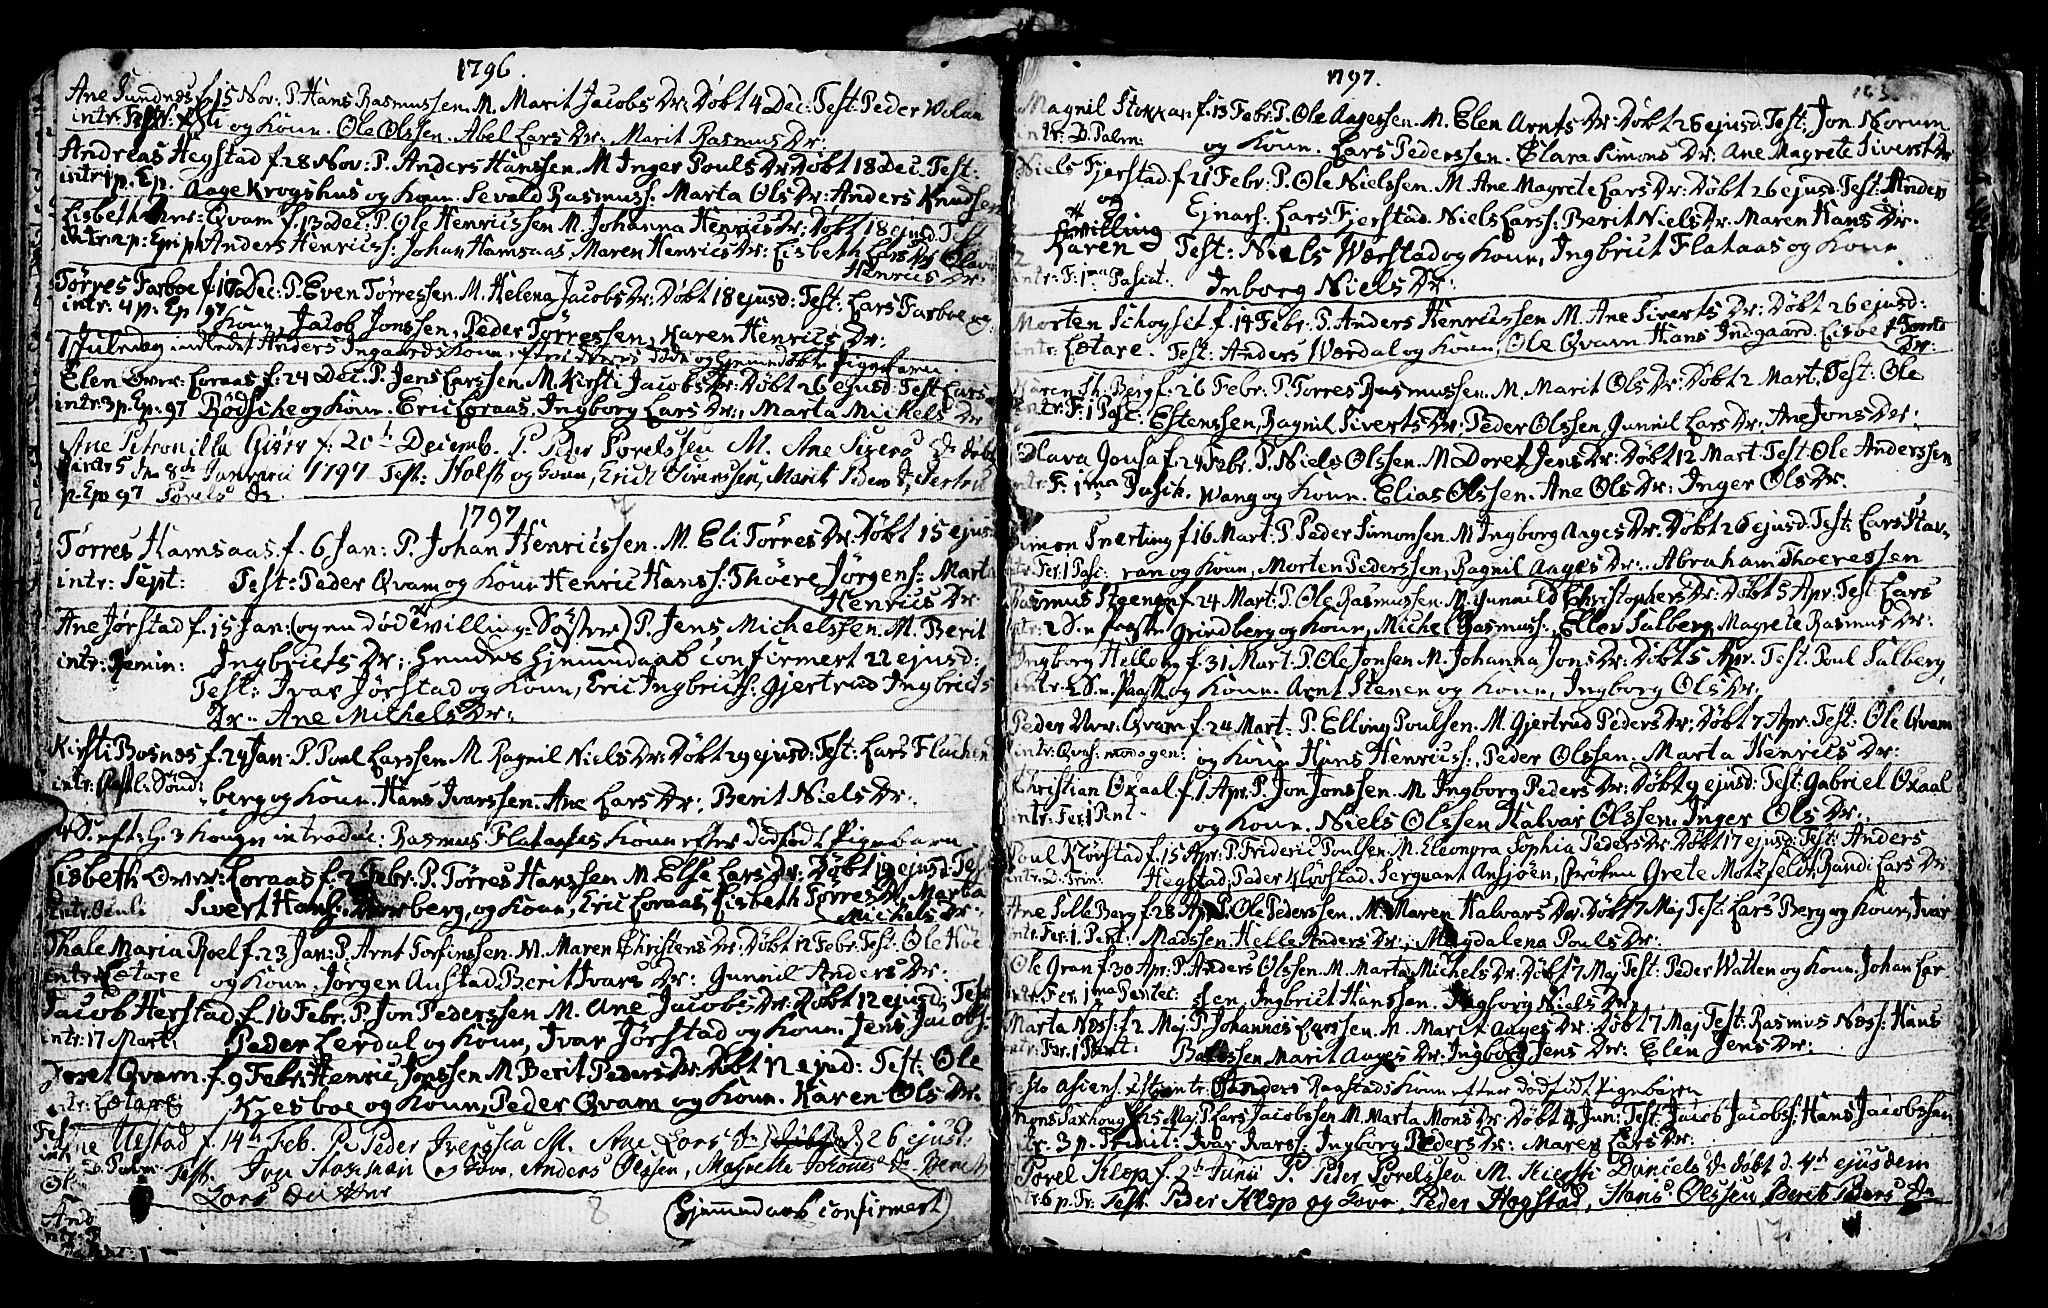 1796.
Ane Sundnæs f. 15 Nov: P. Hans Rasmussen. M. Marit Jacobs Dr: Døbt 4 Dec: Test: Peder
intr: og Konn. Ole Olssen. Abel Lars Dr: Marit Rasmus Dr:
Andreas Hegstad f. 28 Nov: P. Anders Hanssen. M Inger Pouls Dr: Døbt 18 Dec. Test:
intr: 1 p. Ep. Aage Krogshus og Konn. Sevald Rasmuss: Marta Ols Dr: Anders Knudsen
Lisbeth Qvam f. 13 Dec: P. Ole Henricssen M. Johanna Henrics Dr: Døbt 18 ejusd: Test
intr: 2 p: Epiph Anders Henricss: Johan Hamsaas, Maren Henrics Dr: Lisbeth Lars Dr Olava
Henrics Dr:
Tørres Farboe f. 10 Dec: P. Even Tørressen. M. Helena Jacobs Dr: Døbt 18 ejusd: Test: Lars Farboe og
intr: 4 p: Ep 97 Konn, Jacob Jonssen, Peder Tørressen, Karen Henrics Dr:
Juledag indledt Anders Ingaards Konn, efter
Elen Over: Loraas f: 24 Dec: P. Jens Larssen. M. Kirsti Jacobs Dr: Døbt 26 ejusd: Test Lars
intr: 3 p: Ep: 97 Rødsihe og Konn. Eric Loraas, Ingborg Lars Dr:, Marta Michels Dr
Ane Petronilla Giørv f: 20 Decemb. P. Peder Porelssen M. Ane Sivers Dr døbt
den 8de Januarii 1797 Test: Holst og Konn, Erich Siverssen, Marit Peders Dr,
p. Ep. 97 Porels Dr.
1797
Tørres Hamsaas. f. 6 Jan: P. Johan Henricssen. M. Eli Tørres Dr: Døbt 15 ejus
intr: Sept: Test: Peder Qvam og Konn Henric Hanss: Thore Jørgens: Marta
Henrics Dr
Ane Jørstad f. 15 Jan: (og en død Twilling: Søster) P. Jens Michelssen. M. Berit
intr: Remin: Ingbricts Dr: hendes hjemmedaab confirmert 22 ejusd:
Test: Ivar Jørstad og Konn, Eric Ingbrictss: Gjertrud Ingbricts
Dr: Ane Michels Dr:
Kirsti Bosnæs f. 24 Jan: P. Poul Larssen M. Ragnil Niels Dr: Døbt 29 ejusd: Test: Lars Flachen
intr: Pastl: Sønd: berg og Konn. Hans Ivarssen. Ane Lars Dr:, Berit Niels Dr:
4 S. eft: H: 3 Konger introduc: Rasmus Flataases Konn efter dødfødt Pigebarn
Lisbeth Over: Loraas f. 2 Febr: P. Tørres Hanssen M. Else Lars Dr: Døbt 12 ejusd: Test
intr: Oculi Siwert Hanss: berg, og Konn, Eric Loraas, Lisbeth Tørres Dr, Marta
Michels Dr:
Thale Maria Roel f. 23 Jan: P. Arnt Torfinssen. M. Maren Christens Dr: Døbt 12 Febr: Test: Ole Høe
intr: Lætare og Konn. Jørgen Austad. Berit Ivars Dr: Gunnil Anders Dr:
Jacob Herstad f. 10 Febr: P. Jon Pederssen M. Ane Jacobs Dr: Døbt 12 ejusd: Test
intr: 17 Mart: Peder Lerdal og Konn, Ivar Jørstad og Konn. Jens Jacobs:
Doret Qvam. f. 9 Febr: Henric Jonssen M Berit Peders Dr: Døbt 12 ejusd: Test: Ole
intr: Lætare Kjesboe og Konn, Peder Qvam og Konn. Karen Ols Dr:
Ane Ulstad f. 14 Feb. P. Peder Iverssen M. Ane Lars Dr døbt d. 26 ejusd:
Test. Iver og Kone, Anders Olssen, Magrette Johans Dr. Berit
Lars Datter
(Hjemmedaab confirmert)
8
1797.
Magnil Stokkan f. 13 Febr: P. Ole Aagessen. M. Elen Arnts Dr: Døbt 26 ejusd: Test: Jon Norum
intr: D. Palm: og Konn. Lars Pederssen. Clara Simons Dr: Ane Magrete Siverts Dr
Niels Fjerstad f. 21 Febr: P. Ole Nielssen. M. Ane Magrete Lars Dr: Døbt 26 ejusd: Test: Anders
og Ejnars: Lars Fjerstad. Niels Larss: Berit Niels Dr. Maren Hans Dr.
Twilling
Karen Test: Niels Wærstad og Konn, Ingbrict Flataas og Konn.
intr: F: 1ma Pasch: Inborg Niels Dr:
Morten Schogset f. 14 Febr: P. Anders Henricssen M. Ane Siverts Dr: Døbt 26 ejusd:
intr: Lætare. Test: Anders Wærdal og Konn, Ole Qvam Hans Indgaard. Lisbet
Dr:
Karen St: Berg f. 26 Febr: P. Torres Rasmussen. M. Marit Ols Dr: Døbt 2 Mart: Test: Ole
intr: F: 1 Pasc: Estenssen, Ragnil Siverts Dr: Peder Olssen, Gunnil Lars Dr: Ane Jons Dr:
Olava Gousa f. 24 Febr: P. Niels Olssen. M Doret Jens Dr: Døbt 12 Mart: Test: Ole Anderssen
intr: F: 1ma Pasch. Wang og Konn. Elias Olssen. Ane Ols Dr: Inger Ols Dr.
Simon Snerting f 16 Mart: P. Peder Simonsen. M Ingborg Aages Dr: Døbt 26 ejusd: Test: Lars Hav-
intr: Fer: 1 Pasc: ran og Konn, Morten Pederssen, Ragnil Aages Dr:. Abraham Thoeressen
Rasmus Steenen f. 24 Mart: P. Ole Rasmussen. M. Gunnild Christophers Dr: Døbt 5 Apr: Test: Lars
intr: 2 S. e paaske Grindberg og Konn, Michel Rasmuss:, Ellev Salberg, Magrete Rasmus Dr:
Ingborg Hellem f. 31 Mart: P. Ole Jonsen M. Johanna Jons Dr: Døbt 5 Apr. Test: Poul Salberg,
intr: 2 S. e. Paask og Konn. Arnt Stenen og Konn, Ingborg Ols Dr:
Peder Over: Qvam f. 24 Mart: P. Elling Poulsen. M. Gjertrud Peders Dr: Døbt 7 Apr: Test: Ole Qvam
intr: Qvas: modo gen: og Konn Hans Henricss:, Peder Olssen. Marta Henrics Dr:
Christian Oxaal f. 1 Apr: P. Jon Jonssen. M Ingborg Peders Dr: Døbt 9 ejusd: Test: Gabriel Oxaal
intr: Fer: 1 Pent: og Konn. Niels Olssen Halvar Olssen. Inger Ols Dr:.
Poul Kløvstad f. 15 Apr: P. Frideric Poulsen. M. Eleonora Sophia Peders Dr: Døbt 17 ejusd: Test: Anders
intr: D. Trin: Hegstad, Peder Kløvstad. Sergeant Ansjøen, Frøken Grete Motzfeldt, Randi Lars Dr
Ane Solle Berg f. 28 Apr: P. Ole Pederssen. M. Maren Halvars Dr: Døbt 7 Maj Test: Lars Berg og Konn, Ivar
intr: Fer: 1. Pent: Madssen Helle Anders Dr:, Magdalena Pouls Dr:
Ole Gran f. 30 Apr: P. Anders Olssen. M. Marta Michels Dr: Døbt 7 Maj Test: Peder Watten og Konn. Johan Lar
intr: Fer: 1ma Pentec: sen, Ingbrict Hanssen. Ingborg Niels Dr
Marta Næss: f. 2 Maj: P. Johannes Larssen. M. Marit Aages Dr: Døbt 7 Maj Test: Rasmus Næss: Hans
intr: Fer: 1 Pent: Marit Aages Dr: Ingborg Jens Dr: Elen Jens Dr:
intr: Anders Raastads Konn efter dødfødt Pigebarn
Mons Saxhoug f. 25 Maj: P. Lars Jacobssen M. Marta Mons Dr Døbt 4 Jun: Test: Jacob Jacobss: Hans Jacobssen
intr. 3 p: Trinit: Ivar Ivarss: Ingborg Peders Dr: Maren Lars Dr:
Porel Klop f. 2 Junii P. Peder Porelssen M. Kirsti Daniels Dr døbt d. 4 ejusdem
intr: 6 p. Tr. Test: Peder Klop og Kone, Peder Hegstad, Hans Olssen Berit Peders Dr
17